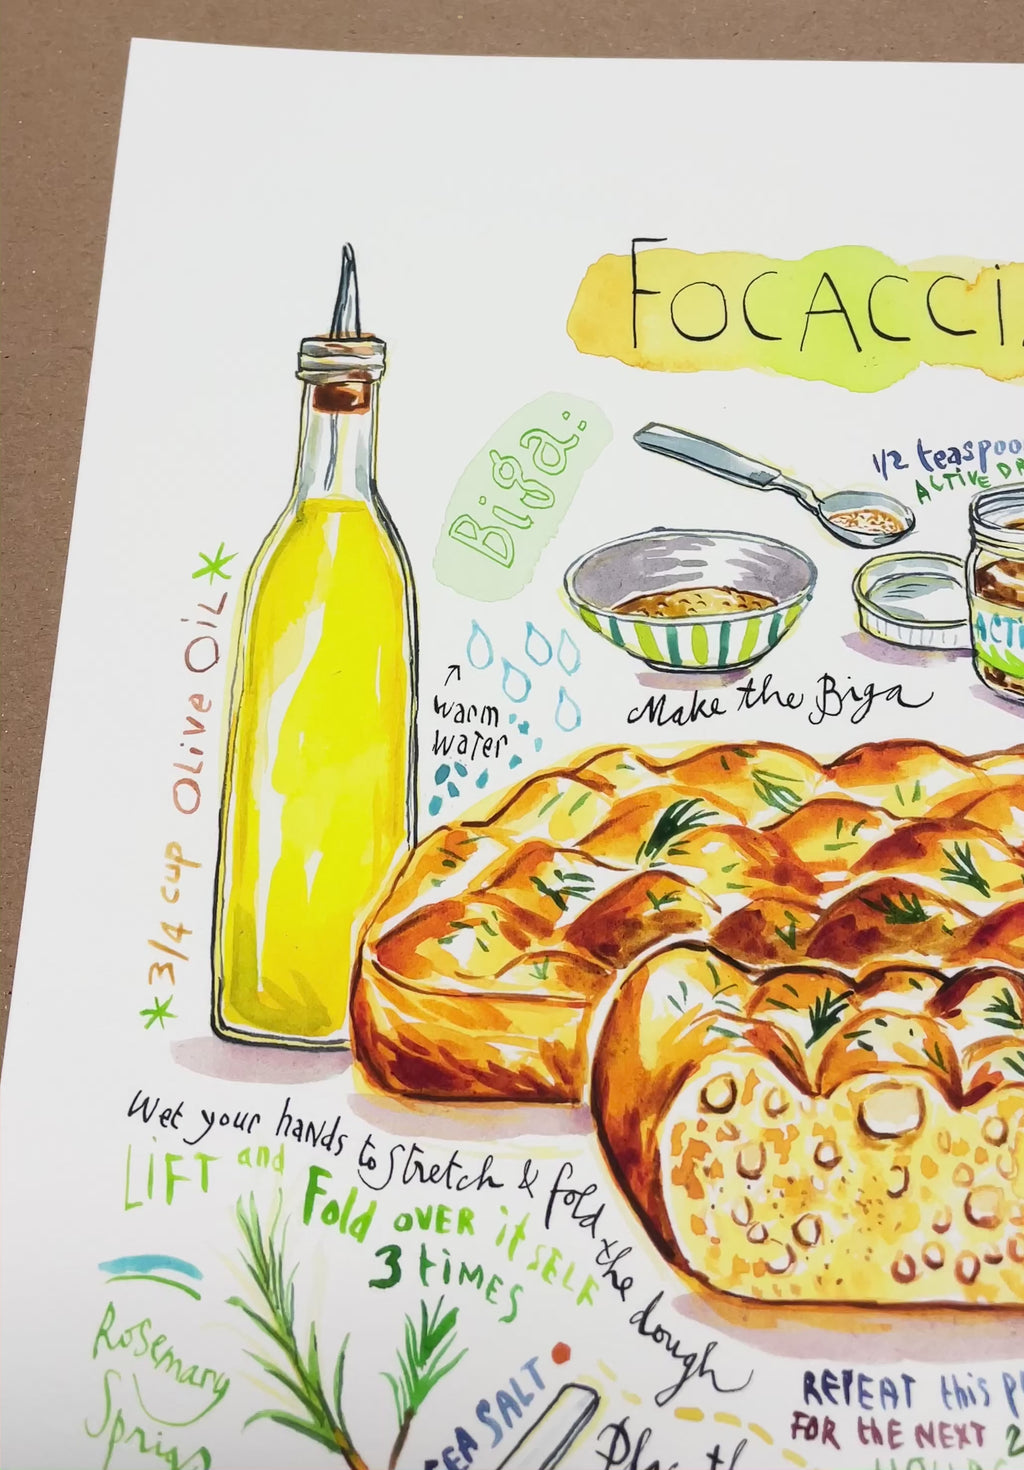 FOCACCI
Biga:
1/2 teaspoo
ACTIVE DR
ACTI
warm
water
Make the Biga
* 3/4 cup OLive OiL *
Wet your hands to Stretch & fold the dough
LiFT and Fold OVER it SELF
3 tiMES
Rosemary
Sprigs
SEA SALT
REPEAT this P
FOR the NEXT 2